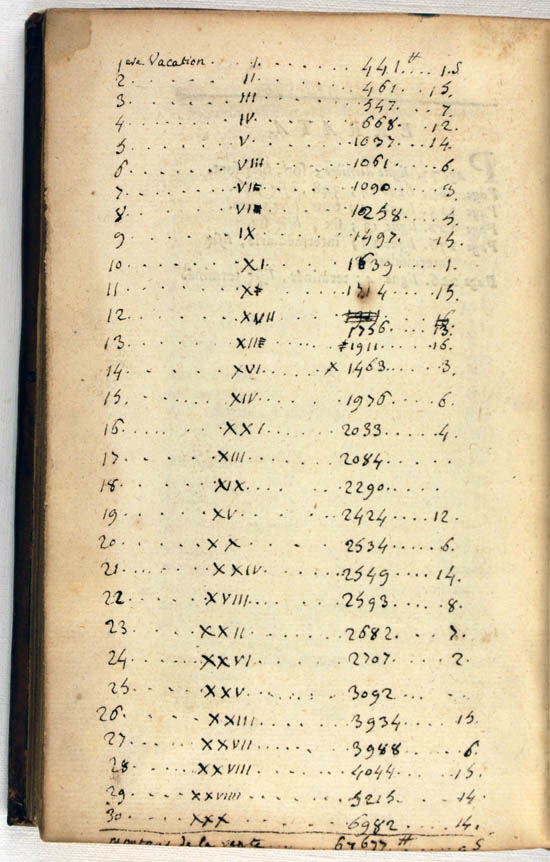 1ere Vacation . . . . I. . . . . . . 441 ₶ . . 1. s
2 . . . . . . . II . . . . . . . 461 . . 15.
3 . . . . . . . III . . . . . . . 547 . . 7
4 . . . . . . . IV . . . . . . . 668 . . 12.
5 . . . . . . . V . . . . . . . 1037 . . 14.
6 . . . . . . . VIII . . . . . . . 1061 . . 6.
7 . . . . . . . VI . . . . . . . 1090 . . 3.
8 . . . . . . . VII . . . . . . . 1258 . . 5.
9 . . . . . . . IX . . . . . . . 1497 . . 15.
10 . . . . . . . XI . . . . . . . 1639 . . 1.
11 . . . . . . . X . . . . . . . 1714 . . 15.
12 . . . . . . . XVII . . . . . . .
1756 . . 13.
13 . . . . . . . XII . . . . . . . 1911 . . 16.
14 . . . . . . . XVI . . . . . . . x 1463 . . 3.
15. . . . . . . XIV . . . . . . . 1976 . . 6.
16 . . . . . . . XXI . . . . . . . 2033 . . 4.
17 . . . . . . . XIII . . . . . . . 2084 . . . .
18 . . . . . . . XIX . . . . . . . 2290 . . . .
19 . . . . . . . XV . . . . . . . 2424 . . 12.
20 . . . . . . . XX . . . . . . . 2534 . . 6.
21 . . . . . . . XXIV . . . . . . . 2549 . . 14.
22 . . . . . . . XVIII . . . . . . . 2593 . . 8.
23 . . . . . . . XXII . . . . . . . 2682 . . 7.
24 . . . . . . . XXVI . . . . . . . 2707 . . 2.
25 . . . . . . . XXV . . . . . . . 3092 . . . .
26 . . . . . . . XXIII . . . . . . . 3934 . . 15.
27 . . . . . . . XXVII . . . . . . . 3988 . . 6.
28 . . . . . . . XXVIII . . . . . . . 4044 . . 15.
29 . . . . . . . XXVIIII . . . . . . . 5215 . . 14.
30 . . . . . . . XXX . . . . . . . 6982 . . 14.
de la vente 67677 ₶ s